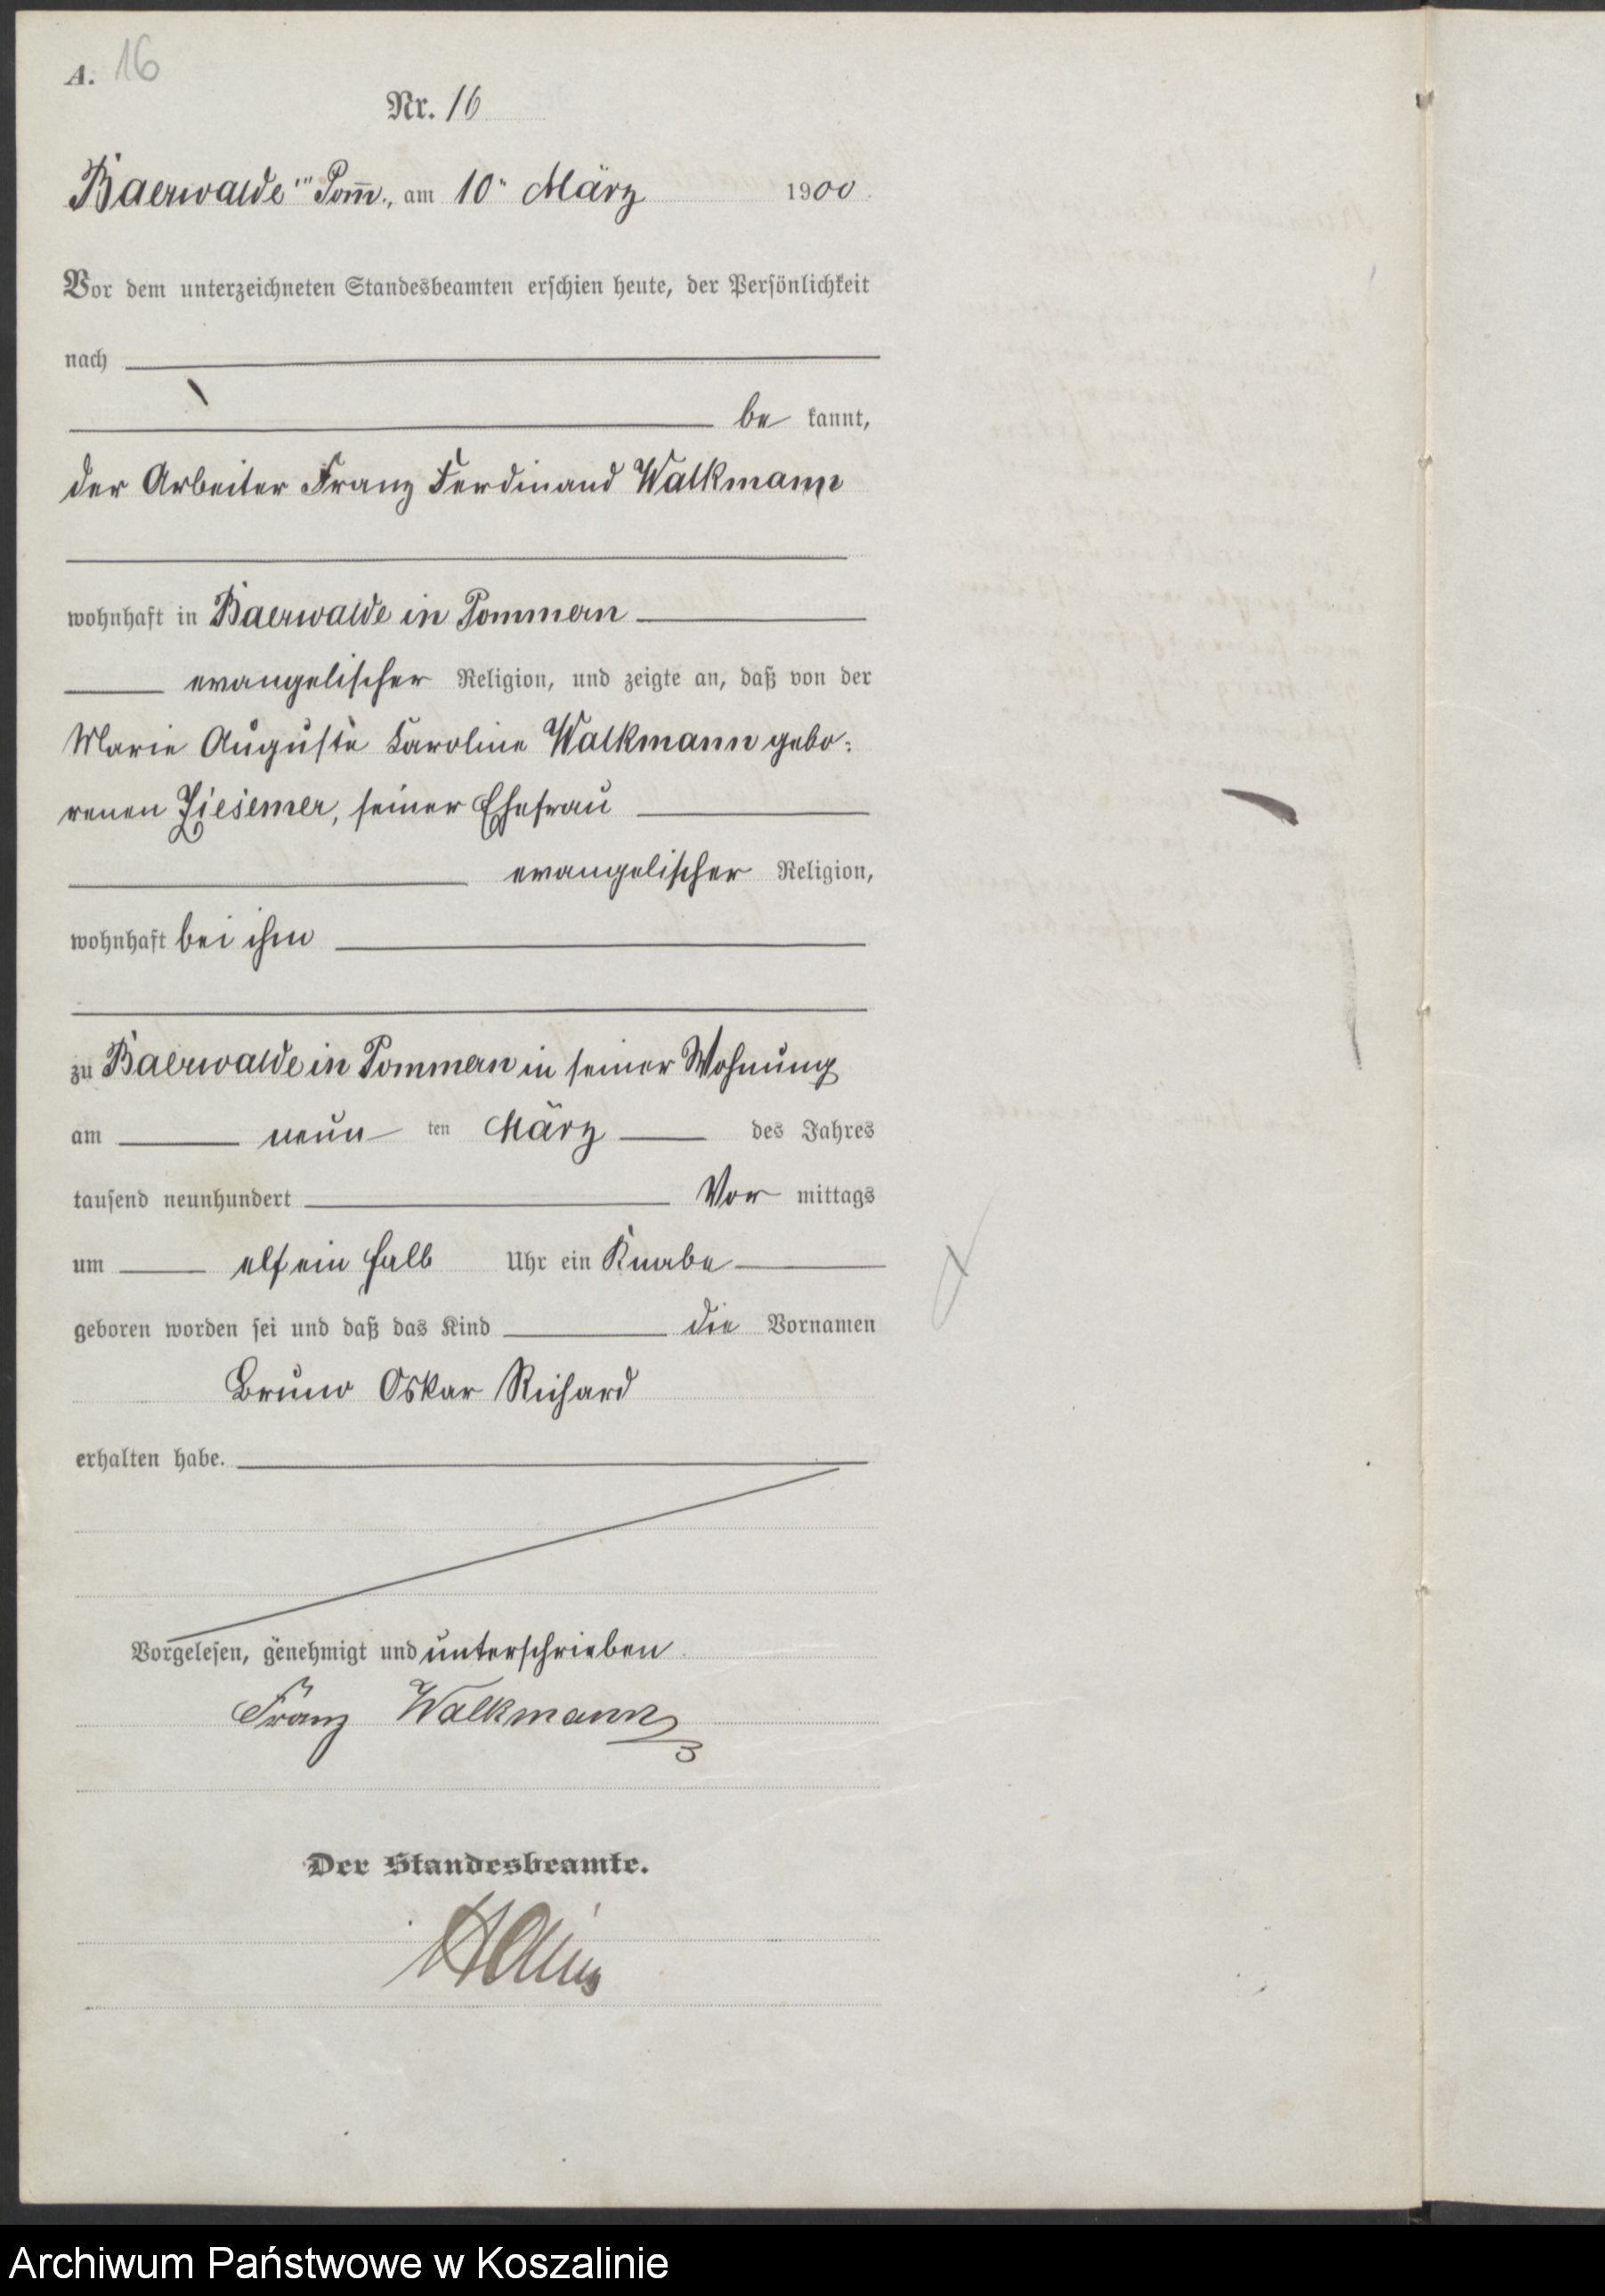 A. 16
Nr. 16
Baerwalde i/Pom̅., am 10ⁿ März 1900
Vor dem unterzeichneten Standesbeamten erschien heute, der Persönlichkeit
nach
be kannt,
der Arbeiter Franz Ferdinand Walkmann
wohnhaft in Baerwalde in Pommern
evangelischer Religion, und zeigte an, daß von der
Marie Auguste Karoline Walkmann gebo:
renen Ziesemer, seiner Ehefrau
evangelischer Religion,
wohnhaft bei ihm
zu Baerwalde in Pommern in seiner Wohnung
am neun ten März des Jahres
tausend neunhundert Vor mittags
um elf ein halb Uhr ein Knabe
geboren worden sei und daß das Kind die Vornamen
Bruno Oskar Richard
erhalten habe.
Vorgelesen, genehmigt und unterschrieben
Franz Walkmann
Der Standesbeamte.
Archiwum Państwowe w Koszalinie